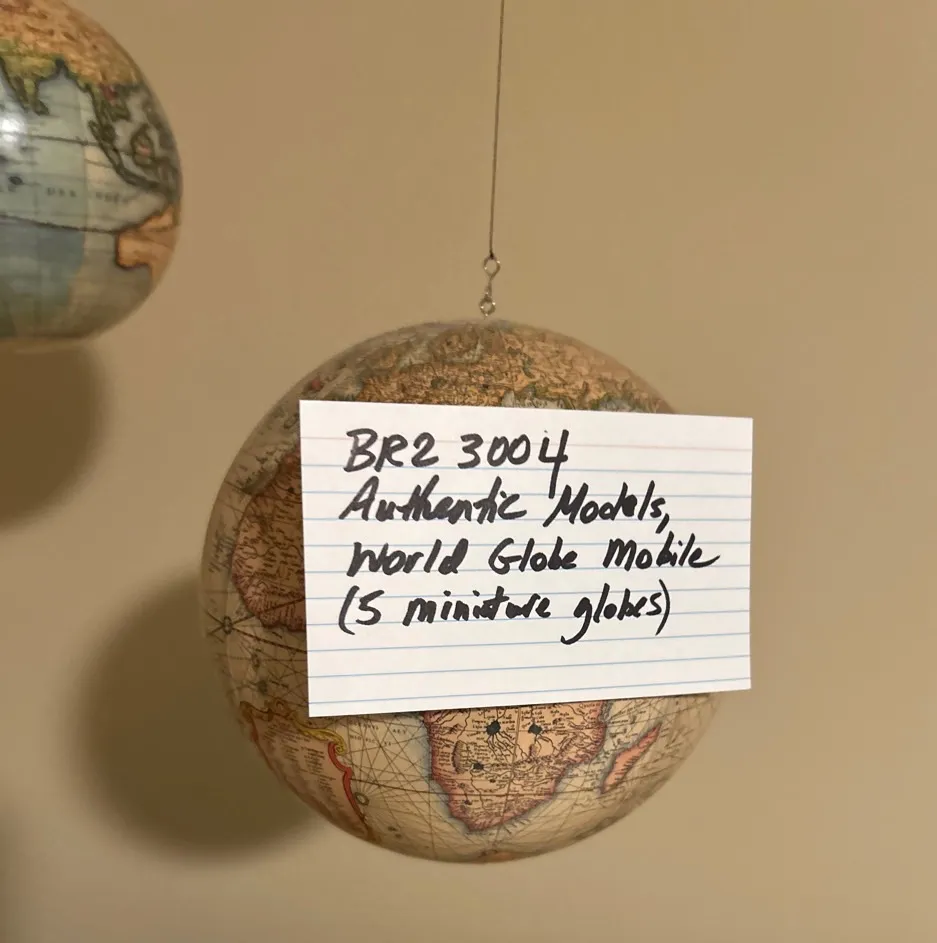 BR2 3004
Authentic Models,
World Globe Mobile
(5 miniature globes)